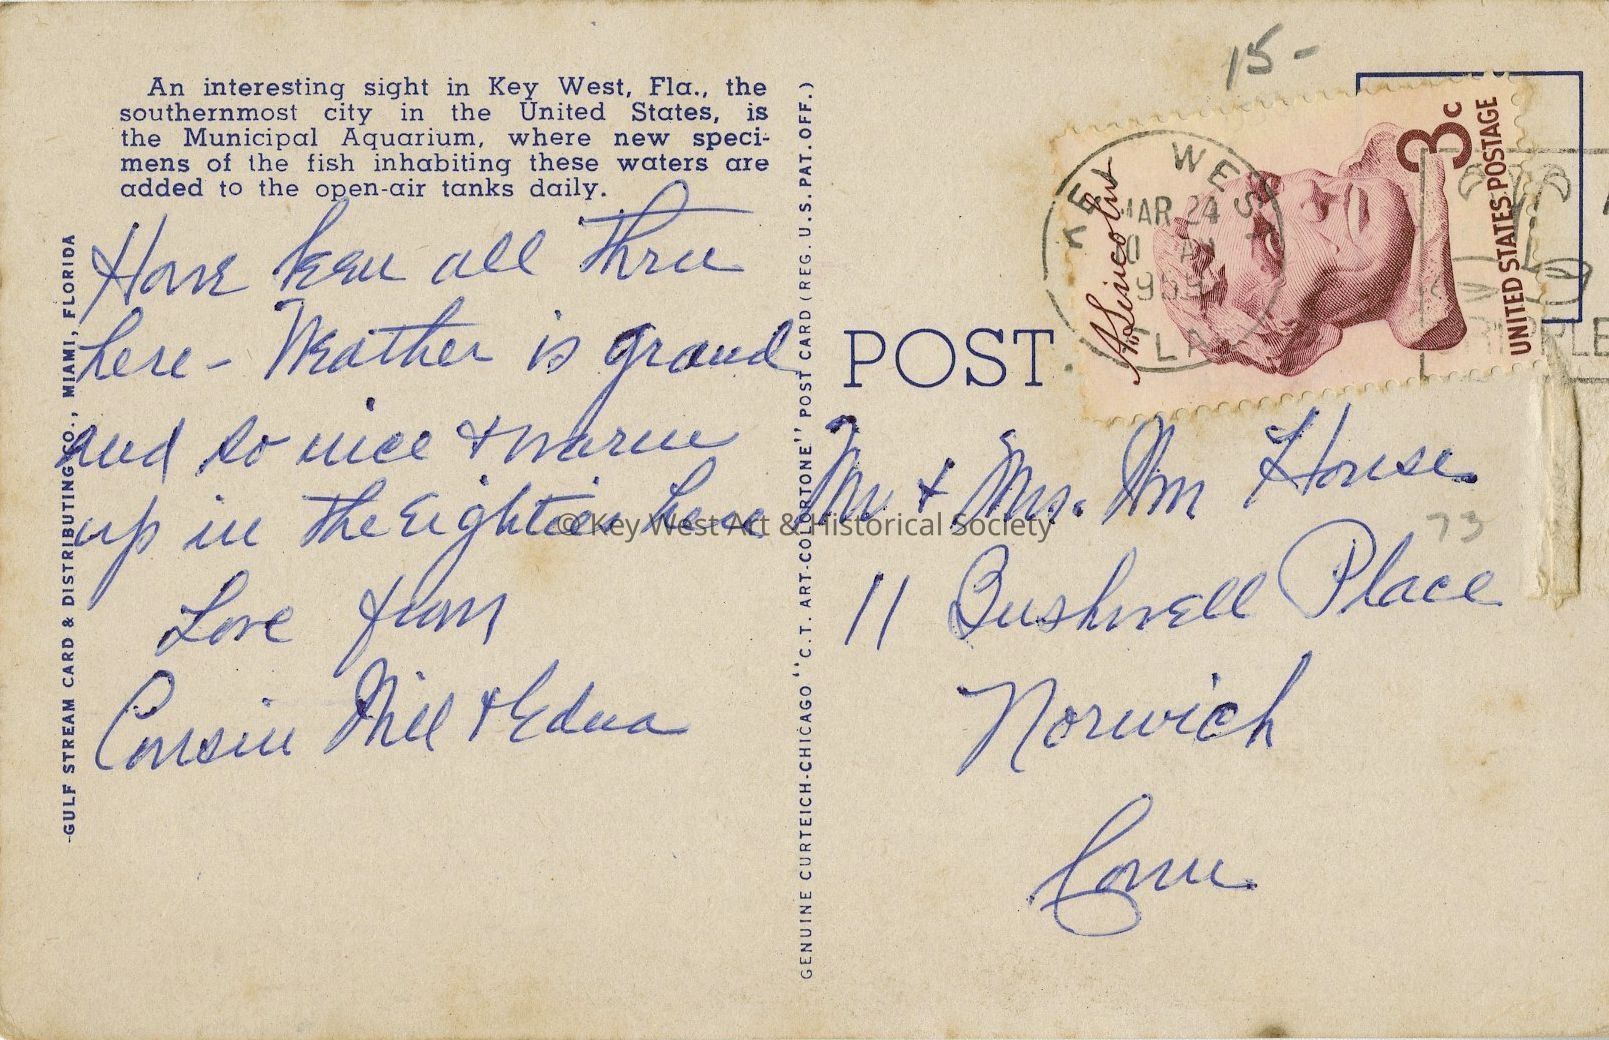 An interesting sight in Key West, Fla., the
southernmost city in the United States, is
the Municipal Aquarium, where new speci-
mens of the fish inhabiting these waters are
added to the open-air tanks daily.
Have been all thru
here - Weather is grand
and so nice & warm
up in the Eighties here
Love from
Cousin Will & Edna
-GULF STREAM CARD & DISTRIBUTING CO., MIAMI, FLORIDA
GENUINE CURTEICH-CHICAGO "C.T. ART-COLORTONE" POST CARD (REG. U.S. PAT. OFF.)
15-
POST
KEY WEST
MAR 24
AM
FLA.
A. Lincoln
3c
UNITED STATES POSTAGE
Mr & Mrs. Wm House
73
11 Bushnell Place
Norwich
Conn.
© Key West Art & Historical Society